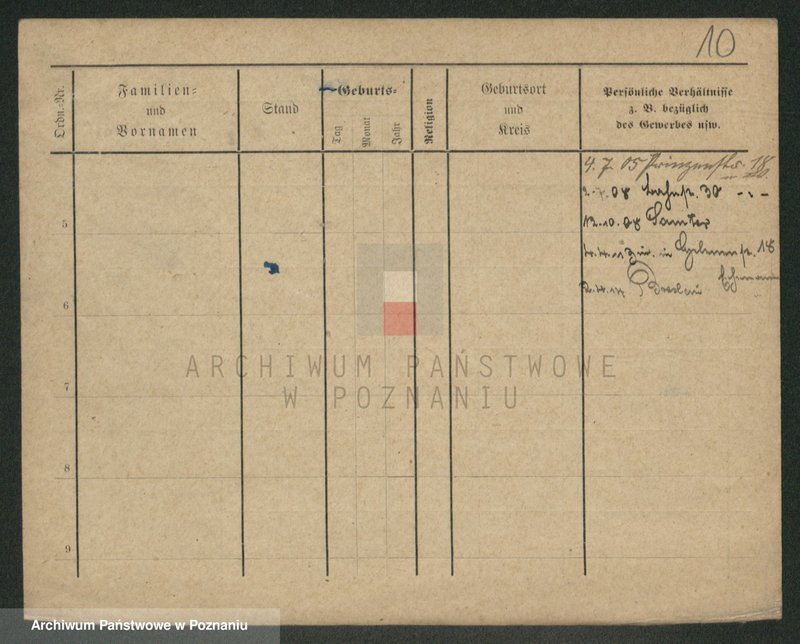 10
Ordn.-Nr.
Familien-
und
Vornamen
Stand
Geburts-
Tag
Monat
Jahr
Religion
Geburtsort
und
Kreis
Persönliche Verhältnisse
z. B. bezüglich
des Gewerbes usw.
4. 7. 05 Prinzenstr. 18
08 30
5
12.10.08 Samter
18
6
Breslau
ARCHIWUM PAŃSTWOWE
W POZNANIU
7
8
9
Archiwum Państwowe w Poznaniu